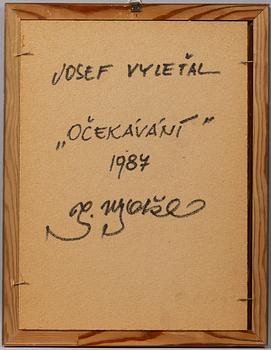 JOSEF VYLEŤAL
„OČEKÁVÁNÍ“
1987